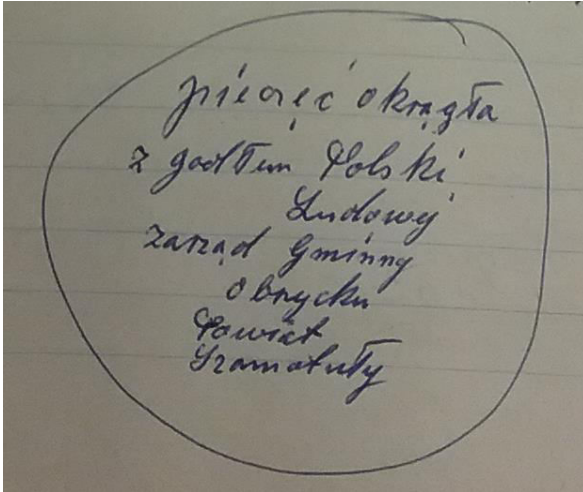 pieczęć okrągła
z godłem Polski
Ludowej
Zarząd Gminny
Obrzycku
Powiat
Szamotuły